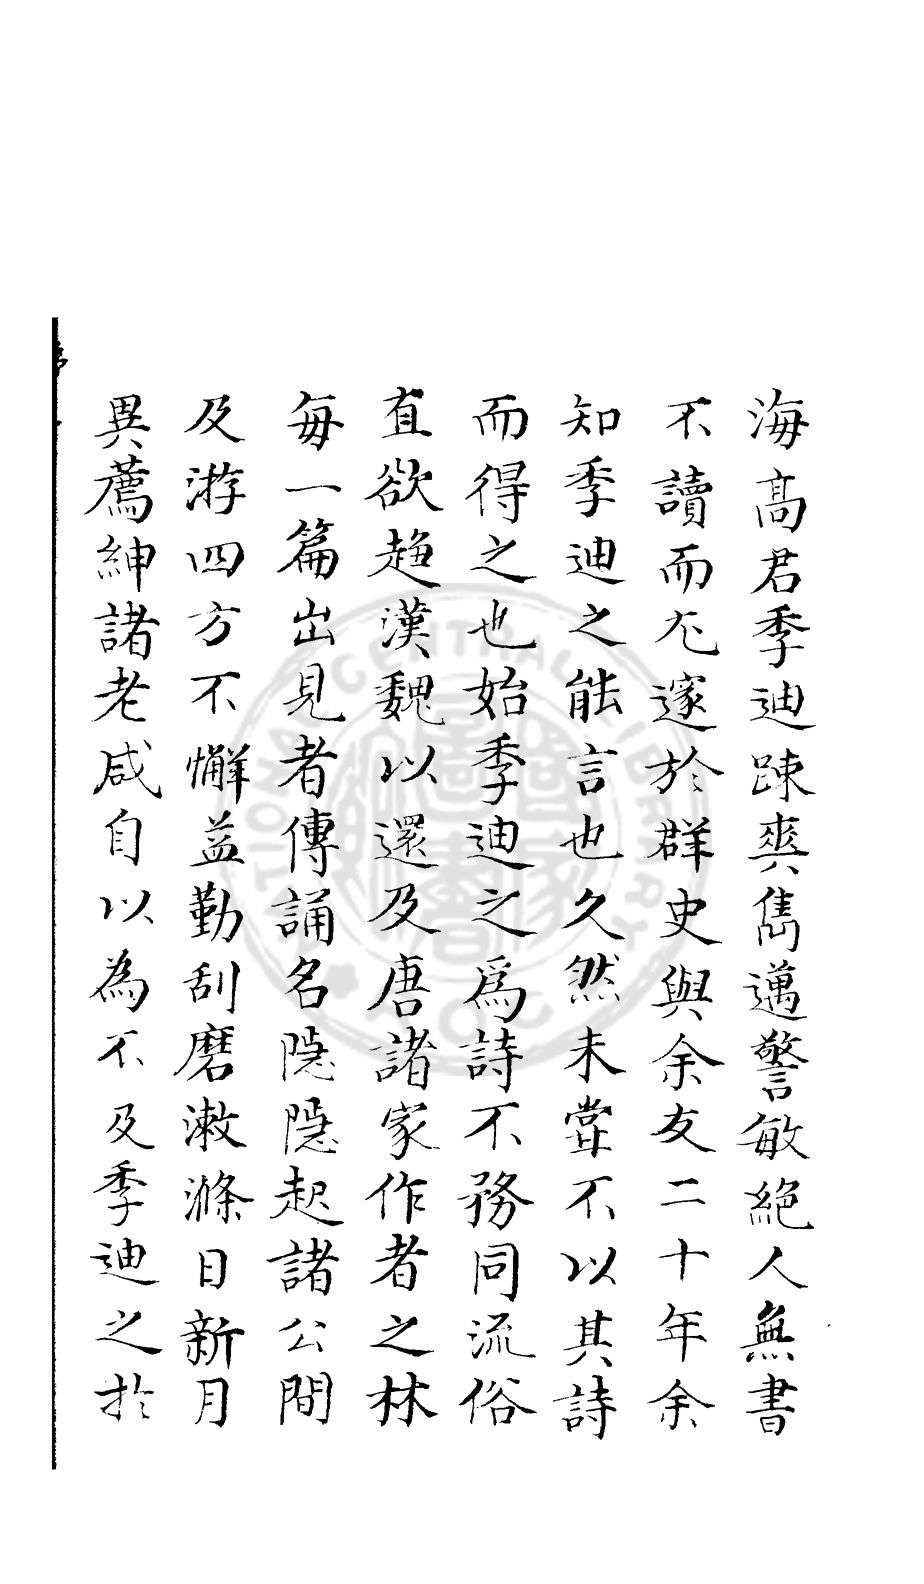 海髙君季迪踈爽雋邁警敏絕人無書
不讀而尤邃於群史與余友二十年余
知季迪之能言也久然未甞不以其詩
而得之也始季迪之爲詩不務同流俗
直欲趍漢魏以還及唐諸家作者之林
每一篇出見者傳誦名隐隐起諸公間
及游四方不懈益勤刮磨潄滌日新月
異薦紳諸老咸自以為不及季迪之於
NATIONAL CENTRAL LIBRARY